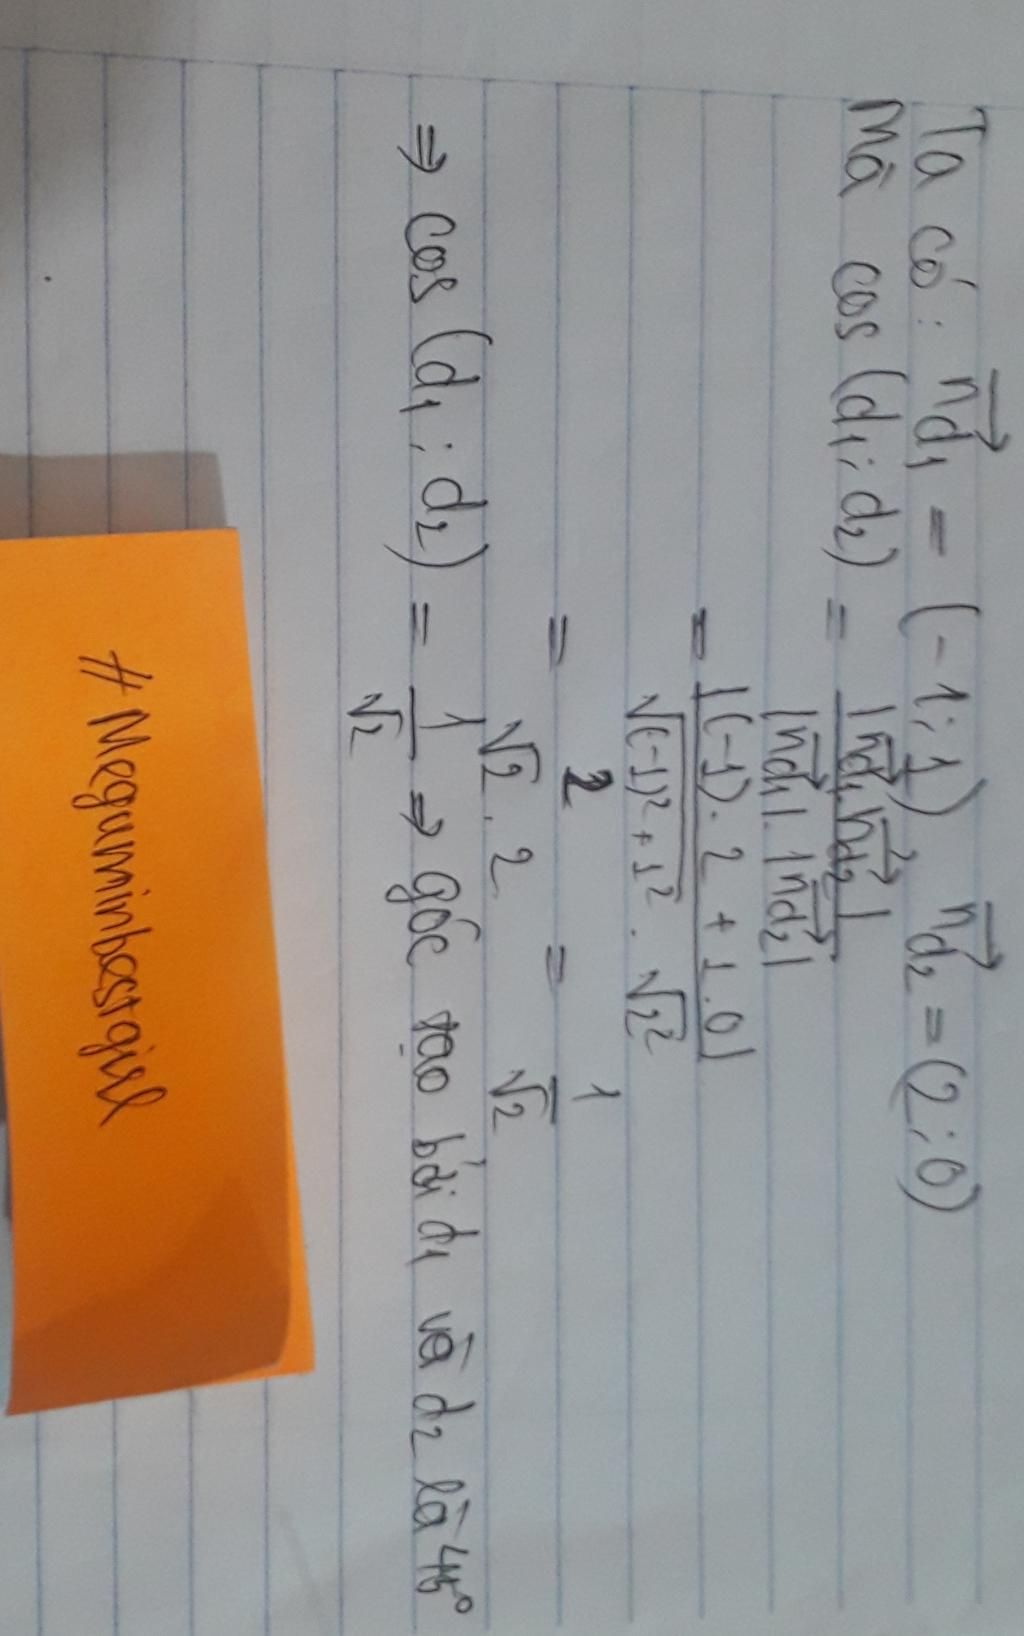 Ta có: $\overrightarrow{n_{d_1}} = (-1; 1)$ $\overrightarrow{n_{d_2}} = (2; 0)$
Mà $\cos(d_1; d_2) = \frac{|\overrightarrow{n_{d_1}} \cdot \overrightarrow{n_{d_2}}|}{|\overrightarrow{n_{d_1}}| \cdot |\overrightarrow{n_{d_2}}|}$
$= \frac{|(-1) \cdot 2 + 1 \cdot 0|}{\sqrt{(-1)^2 + 1^2} \cdot \sqrt{2^2}}$
$= \frac{2}{\sqrt{2} \cdot 2} = \frac{1}{\sqrt{2}}$
$\Rightarrow \cos(d_1; d_2) = \frac{1}{\sqrt{2}} \Rightarrow$ góc tạo bởi $d_1$ và $d_2$ là 45°
# Meguminbestgirl